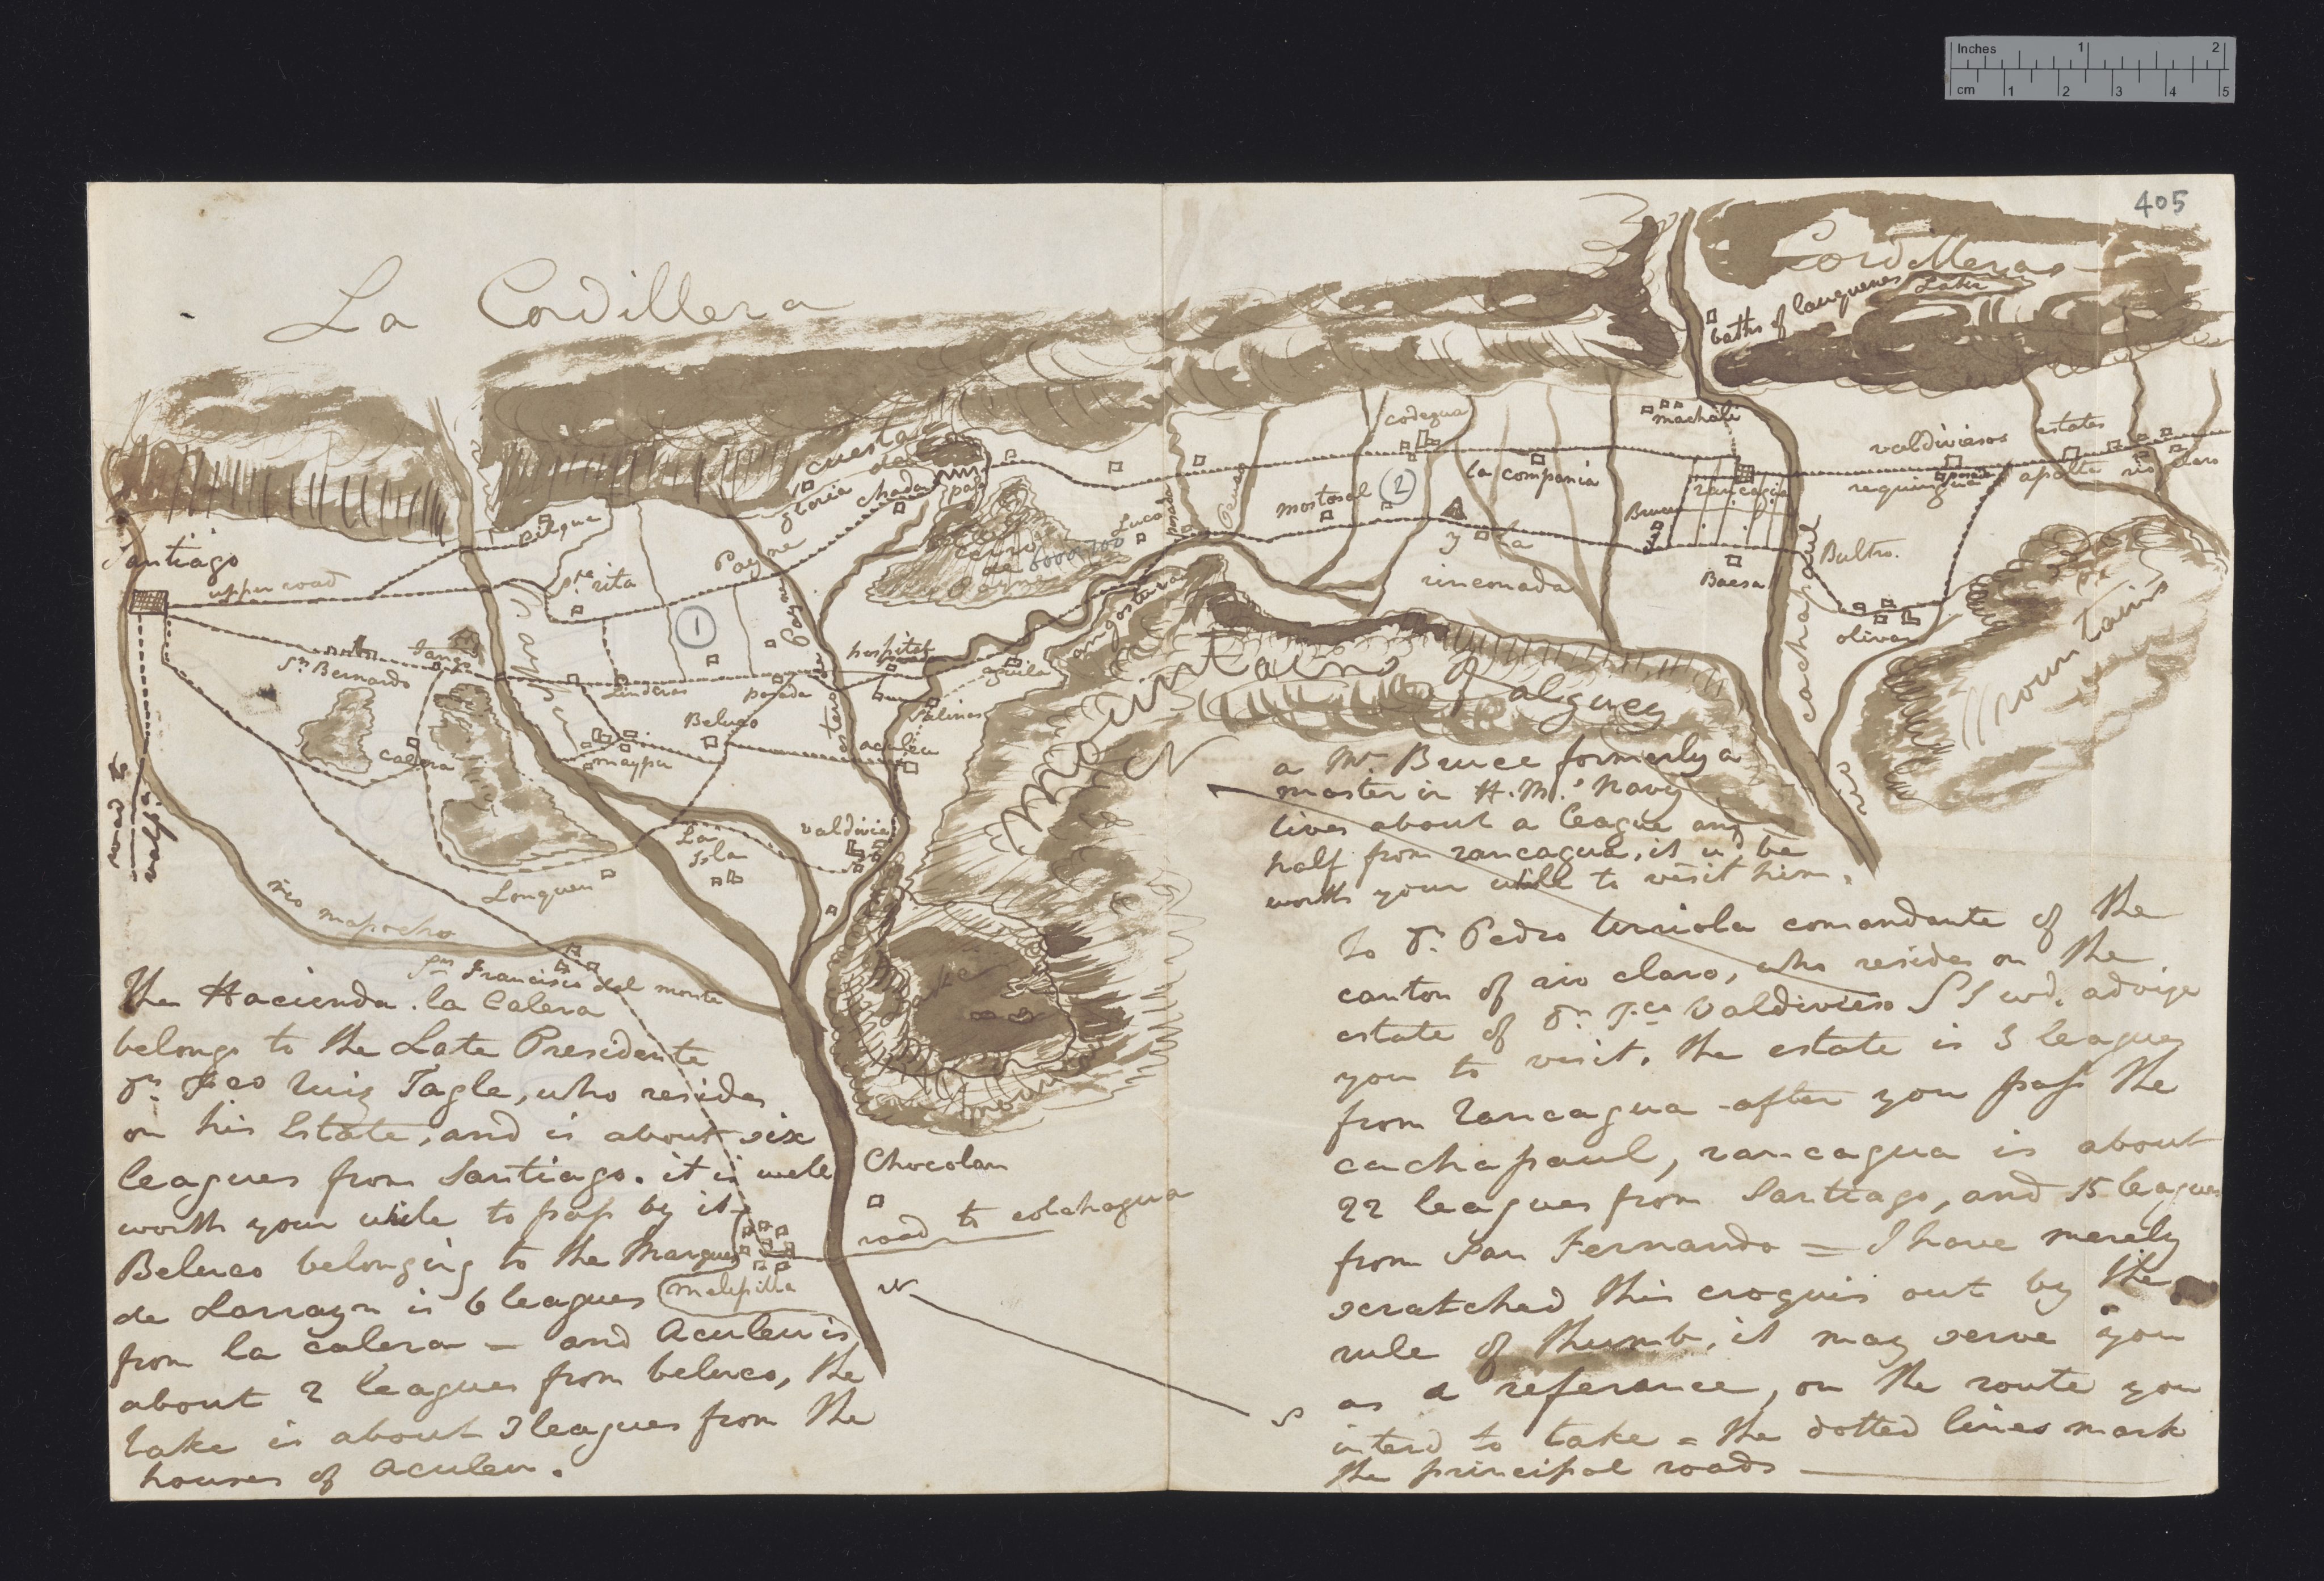 Inches 1 2
cm 1 2 3 4 5
405
La Cordillera
Cordilleras
baths of Cauquenes
Lake
machali
codegua
cuesta
de
chada
gloria
paso
valdiviesos estates
la compania
rancagua
requingua
posada
apalta
rio claro
pirque
Santiago
upper road
Sta. rita
Payne
Payne
cerro
de
Payne
6000
700
Luco
posada
Peuco
mostosal
2
Bruce
y la
rinconada
Baesa
Bultro.
cachapaul
olivar
mountains
1
Sn. Bernardo
Tango
Linderos
posada
hospital
aguila
angostura
Salinas
mountains of alguey
calera
maypu
Beluco
aculeu
road to
valparaiso
La
Isla
valdivia
Lonquen
rio mapocho
Sn. Francisco del monte
Lake
mountains
rio
N
a Mr. Bruce formerly a
master in H.M.s Navy
lives about a league and
half from rancagua, it wd. be
worth your while to visit him.
S
To Dn. Pedro Urriola comandante of the
canton of rio claro, who resides on the
estate of Dn. Fco. Valdivieso I wd. advise
you to visit. the estate is 3 leagues
from rancagua after you pass the
cachapaul, rancagua is about
22 leagues from Santiago, and 15 leagues
from San Fernando = I have merely
scratched this croquis out by the
rule of thumb, it may serve you
as a reference, on the route you
intend to take = the dotted lines mark
the principal roads
The Hacienda la Calera
belongs to the Late Presidente
Dn. Fco Ruiz Tagle, who resides
on his Estate, and is about six
leagues from Santiago. it is well
worth your while to pass by it.
Beluco belonging to the Marques
de Larrayn is 6 leagues
from la calera = and Aculeu is
about 2 leagues from beluco, the
lake is about 3 leagues from the
houses of aculeu.
melipilla
Chocolan
road to colchagua
N
S